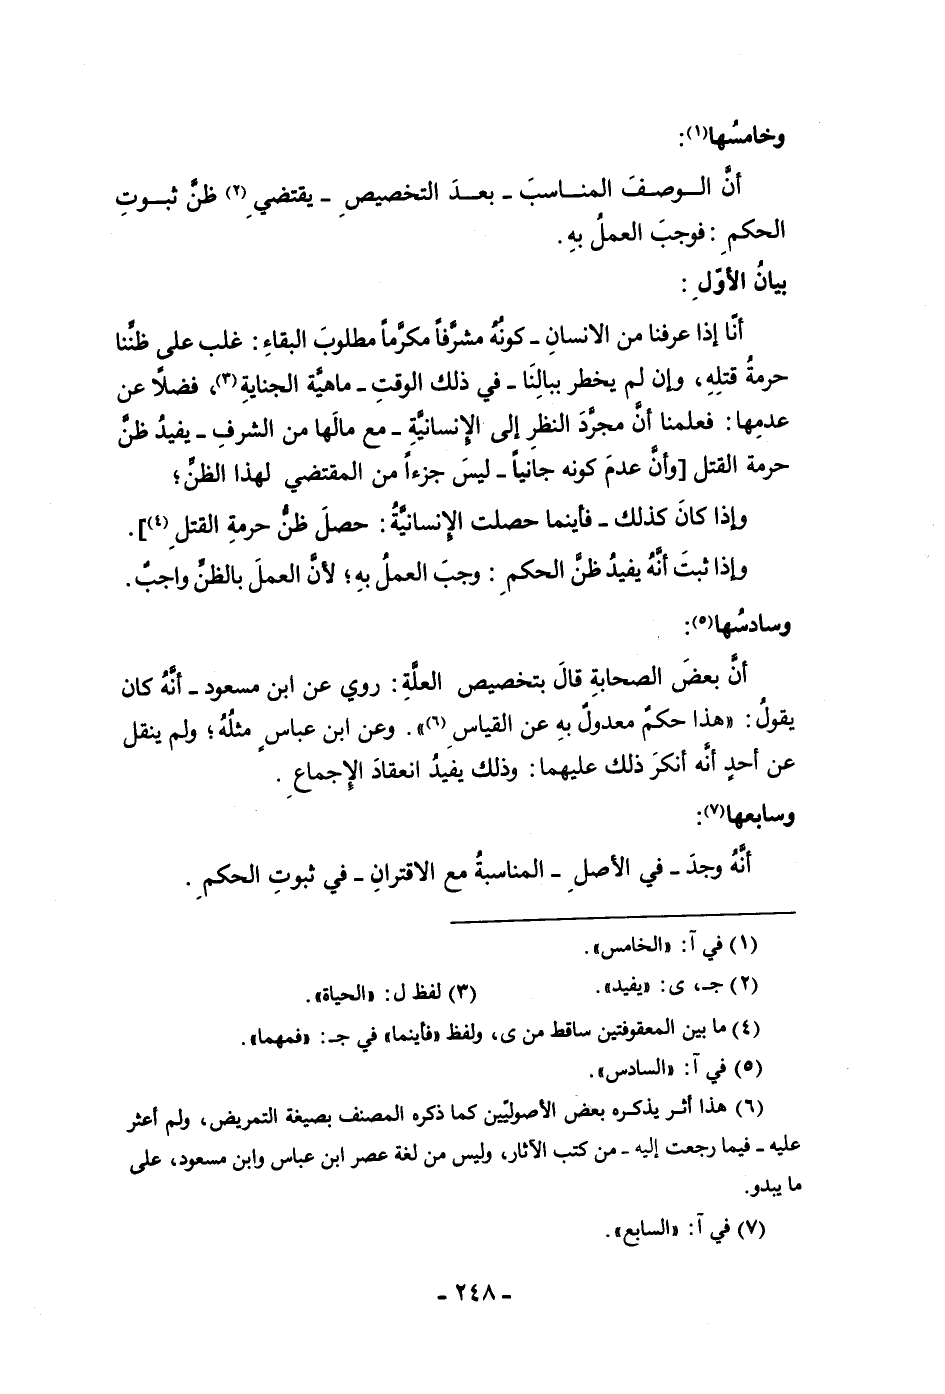 وخامسُها(١):
أنَّ الـوصـفَ المنـاسبَ ـ بعـدَ التخصيصِ ـ يقتضي(٢) ظنَّ ثبـوتِ
الحكمِ: فوجبَ العملُ بهِ.
بيانُ الأوّلِ:
أنّا إذا عرفنا من الانسانِ ـ كونُهُ مشرَّفاً مكرَّماً مطلوبَ البقاءِ: غلب على ظنِّنا
حرمةُ قتلِهِ، وإن لم يخطر ببالِنَا ـ في ذلك الوقتِ ـ ماهيَّة الجنايةِ(٣)، فضلًا عن
عدمِها: فعلمنا أنَّ مجرَّدَ النظرِ إلى الإِنسانيَّةِ ـ مع مالَها من الشرفِ ـ يفيدُ ظنَّ
حرمة القتل [وأنَّ عدمَ كونه جانياً ـ ليسَ جزءاً من المقتضي لهذا الظنِّ؛
وإذا كانَ كذلك ـ فأينما حصلت الإِنسانيَّةُ: حصلَ ظنُّ حرمةِ القتلِ(٤)].
وإذا ثبتَ أنَّهُ يفيدُ ظنَّ الحكمِ: وجبَ العملُ بهِ؛ لأنَّ العملَ بالظنِّ واجبٌ.
وسادسُها(٥):
أنَّ بعضَ الصحابةِ قالَ بتخصيص العلَّةِ: روي عن ابن مسعود ـ أنَّهُ كان
يقولُ: «هذا حكمٌ معدولٌ بهِ عن القياسِ(٦)». وعن ابن عباسٍ مثلُهُ؛ ولم ينقل
عن أحدٍ أنَّه أنكرَ ذلك عليهما: وذلك يفيدُ انعقادَ الإِجماعِ.
وسابعها(٧):
أنَّهُ وجدَ ـ في الأصلِ ـ المناسبةُ مع الاقترانِ ـ في ثبوتِ الحكمِ.
(١) في آ: «الخامس».
(٢) جـ، ى: «يفيد». (٣) لفظ ل: «الحياة».
(٤) ما بين المعقوفتين ساقط من ى، ولفظ «فأينما» في جـ: «فمهما».
(٥) في آ: «السادس».
(٦) هذا أثـر يذكـره بعض الأصوليّين كما ذكره المصنف بصيغة التمريض، ولم أعثر
عليه ـ فيما رجعت إليه ـ من كتب الآثار، وليس من لغة عصر ابن عباس وابن مسعود، على
ما يبدو.
(٧) في آ: «السابع».
ـ ٢٤٨ ـ